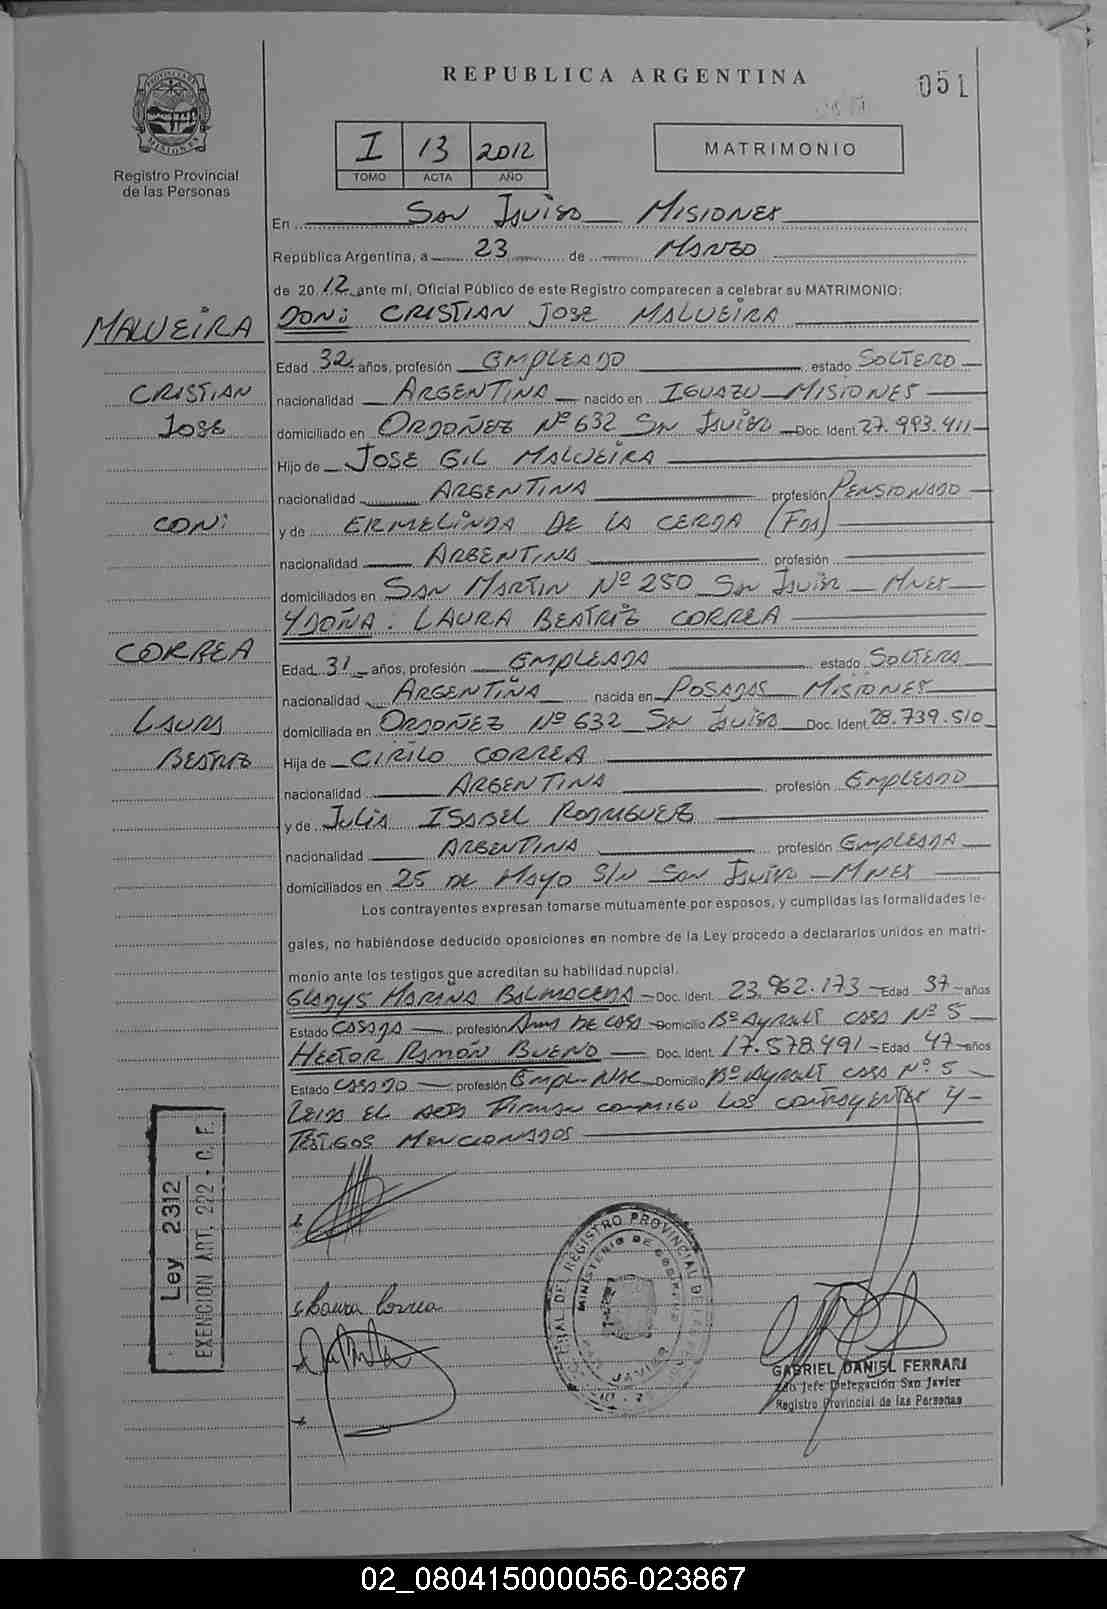 REPUBLICA ARGENTINA
051
PROVINCIA DE MISIONES
Registro Provincial
de las Personas
I 13 2012
TOMO ACTA AÑO
MATRIMONIO
En San Javier Misiones
República Argentina, a 23 de Marzo
de 2012 ante mí, Oficial Público de este Registro comparecen a celebrar su MATRIMONIO:
MALVEIRA DON: CRISTIAN JOSE MALVEIRA
Edad 32 años, profesión EMPLEADO estado SOLTERO
CRISTIAN nacionalidad ARGENTINA nacido en IGUAZU MISIONES
JOSE domiciliado en ORDOÑEZ Nº 632 SAN JAVIER Doc. Ident. 27.993.411
Hijo de JOSE GIL MALVEIRA
nacionalidad ARGENTINA profesión PENSIONADO
CON: y de ERMELINDA DE LA CERDA (FDA)
nacionalidad ARGENTINA profesión
domiciliados en SAN MARTIN Nº 250 SAN JAVIER MNES
Y DOÑA. LAURA BEATRIZ CORREA
CORREA Edad 31 años, profesión EMPLEADA estado SOLTERA
nacionalidad ARGENTINA nacida en POSADAS MISIONES
LAURA domiciliada en ORDOÑEZ Nº 632 SAN JAVIER Doc. Ident. 28.739.510
BEATRIZ Hija de CIRILO CORREA
nacionalidad ARGENTINA profesión EMPLEADO
y de JULIA ISABEL RODRIGUEZ
nacionalidad ARGENTINA profesión EMPLEADA
domiciliados en 25 DE MAYO S/N SAN JAVIER MNES
Los contrayentes expresan tomarse mutuamente por esposos, y cumplidas las formalidades le-
gales, no habiéndose deducido oposiciones en nombre de la Ley procedo a declararlos unidos en matri-
monio ante los testigos que acreditan su habilidad nupcial.
GLADYS MARINA BALMACEDA Doc. Ident. 23.962.173 Edad 37 años
Estado CASADA profesión AMA DE CASA Domicilio Bº AYRAULT CASA Nº 5
HECTOR RAMÓN BUENO Doc. Ident. 17.578.491 Edad 47 años
Estado CASADO profesión Domicilio Bº AYRAULT CASA Nº 5
LEIDA EL ACTA FIRMAN CONMIGO LOS CONTRAYENTES Y
TESTIGOS MENCIONADOS
Ley 2312
EXENCION ART. 222 - C. F.
Laura Correa
DEL REGISTRO PROVINCIAL DE
MINISTERIO DE GOBIERNO
SAN JAVIER
GABRIEL DANIEL FERRARI
Jefe Delegación San Javier
Registro Provincial de las Personas
02_080415000056-023867